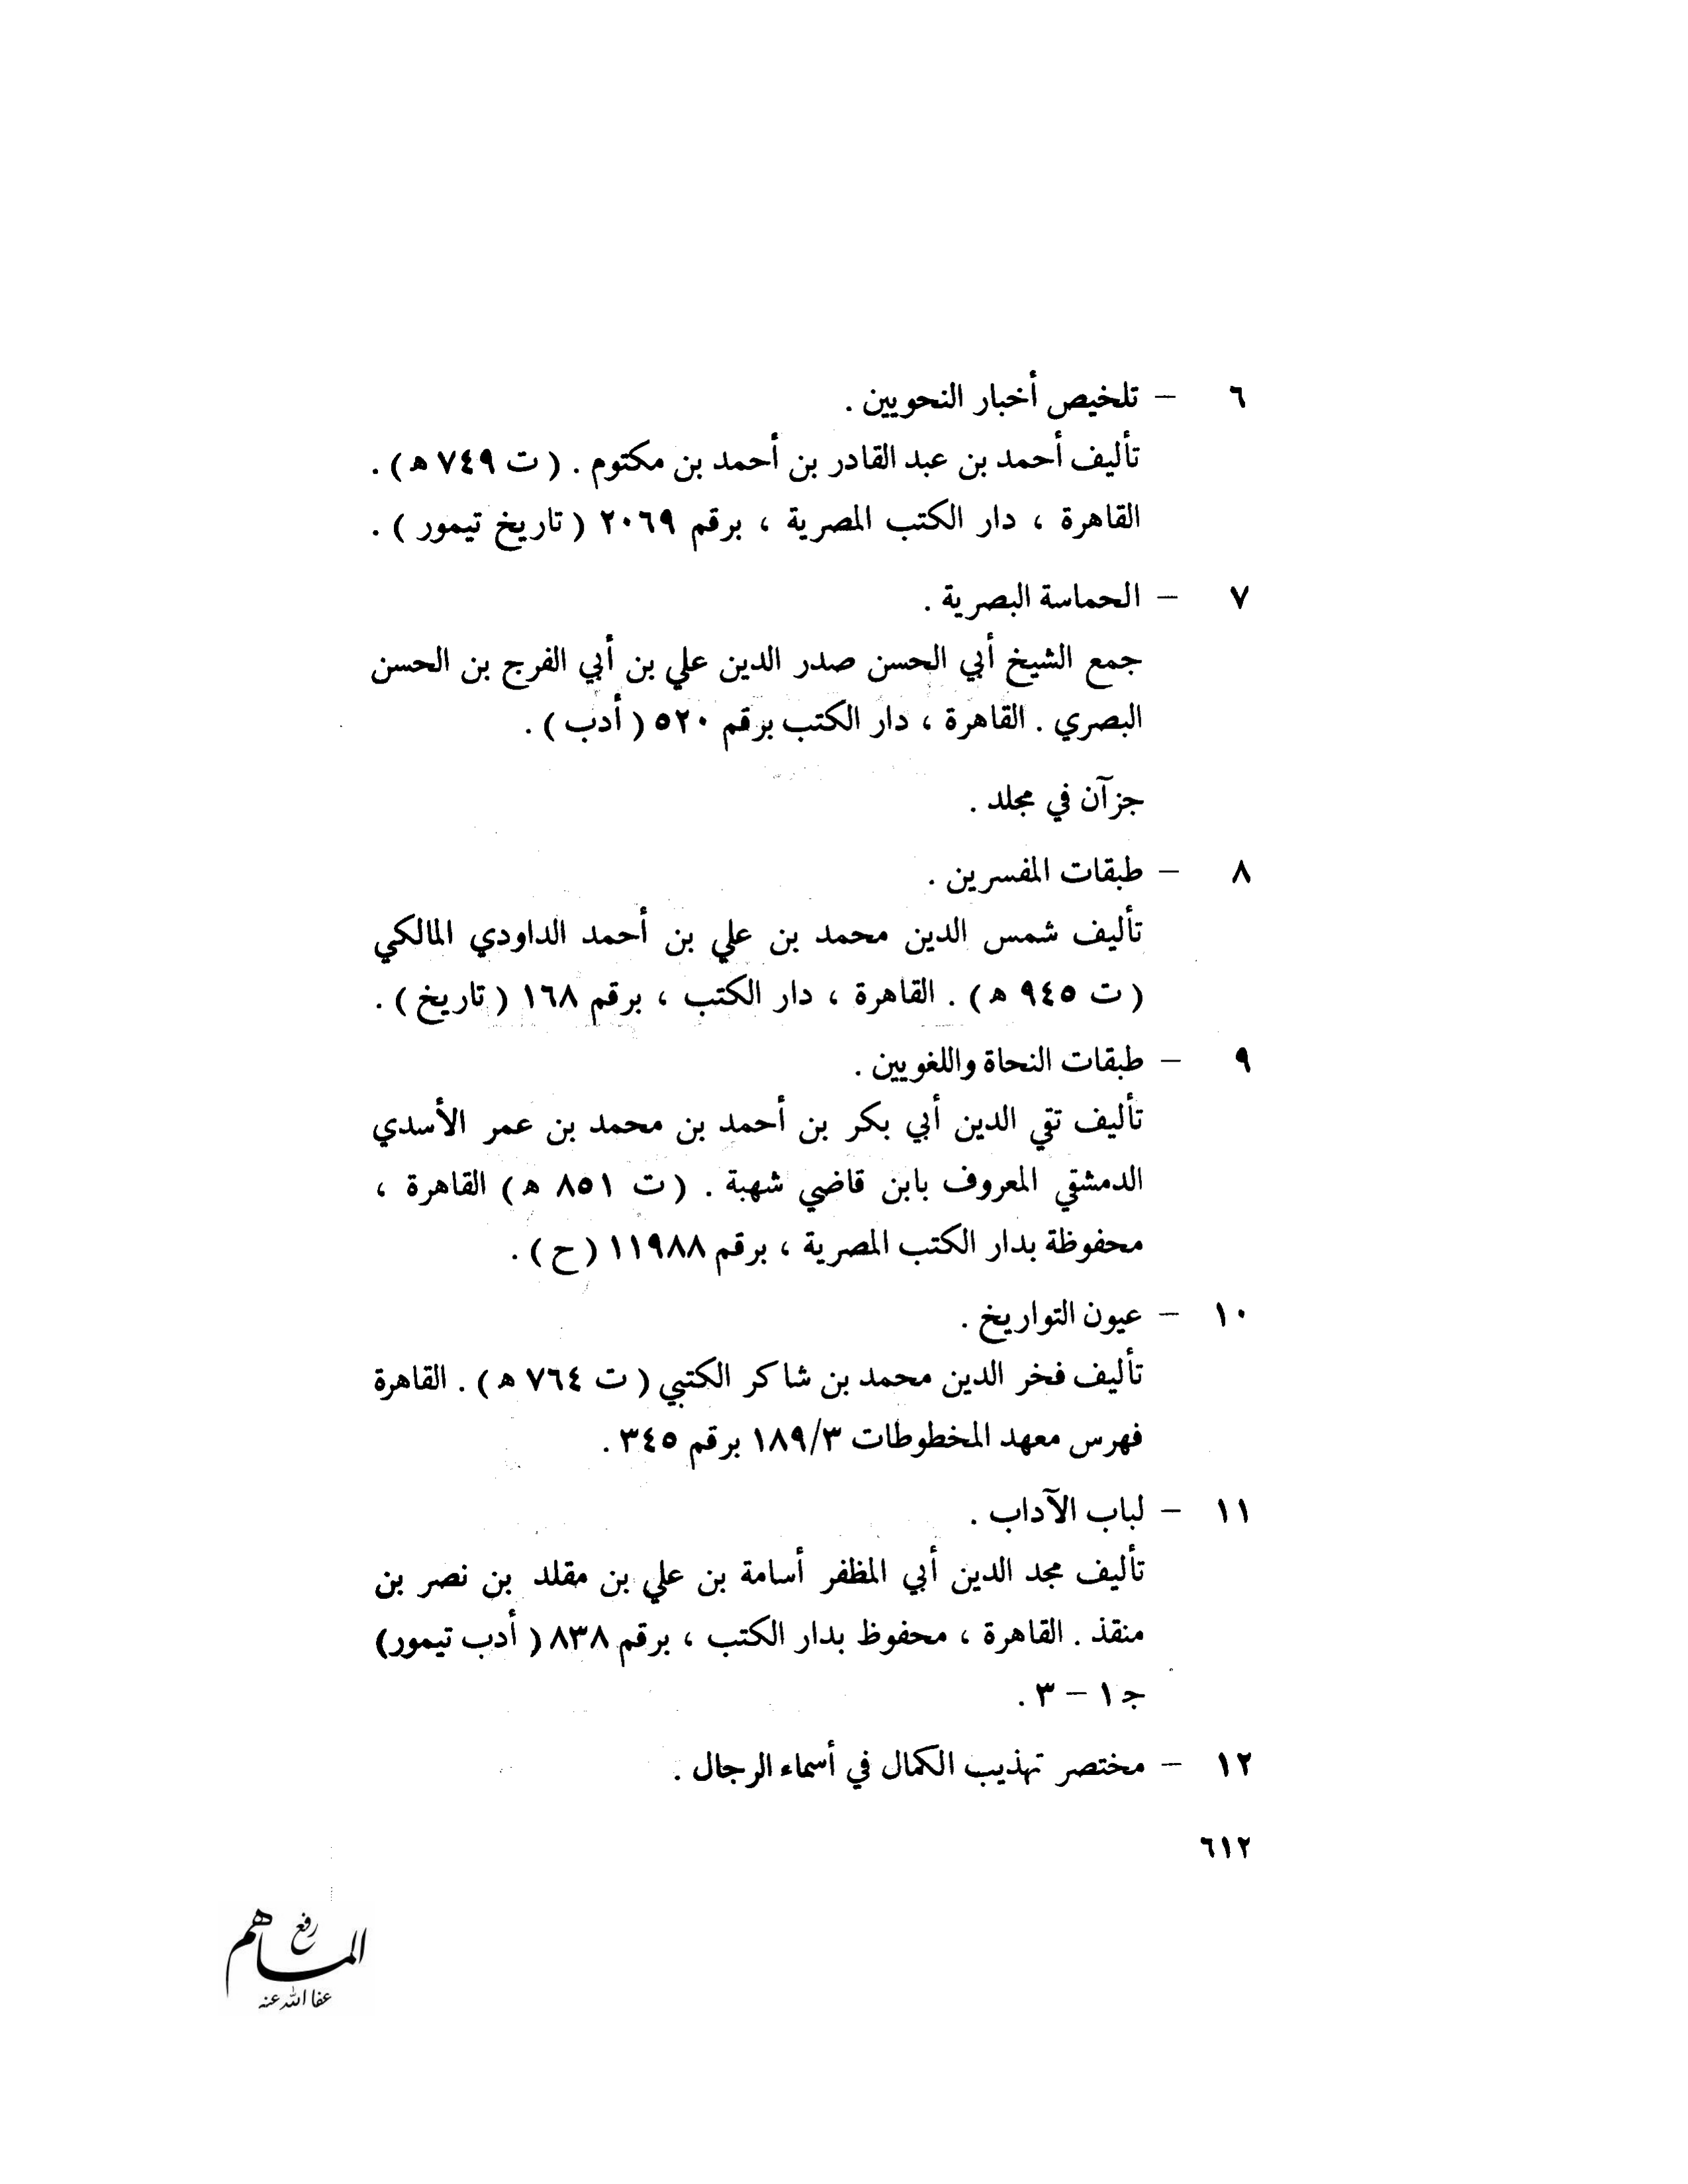 ٦ – تلخيص أخبار النحويين .
تأليف أحمد بن عبد القادر بن أحمد بن مكتوم . ( ت ٧٤٩ ه ) .
القاهرة ، دار الكتب المصرية ، برقم ٢٠٦٩ ( تاريخ تيمور ) .
٧ – الحماسة البصرية .
جمع الشيخ أبي الحسن صدر الدين علي بن أبي الفرج بن الحسن
البصري . القاهرة ، دار الكتب برقم ٥٢٠ ( أدب ) .
جزآن في مجلد .
٨ – طبقات المفسرين .
تأليف شمس الدين محمد بن علي بن أحمد الداودي المالكي
( ت ٩٤٥ ه ) . القاهرة ، دار الكتب ، برقم ١٦٨ ( تاريخ ) .
٩ – طبقات النحاة واللغويين .
تأليف تقي الدين أبي بكر بن أحمد بن محمد بن عمر الأسدي
الدمشقي المعروف بابن قاضي شهبة . ( ت ٨٥١ ه ) القاهرة ،
محفوظة بدار الكتب المصرية ، برقم ١١٩٨٨ ( ح ) .
١٠ – عيون التواريخ .
تأليف فخر الدين محمد بن شاكر الكتبي ( ت ٧٦٤ ه ) . القاهرة
فهرس معهد المخطوطات ١٨٩/٣ برقم ٣٤٥ .
١١ – لباب الآداب .
تأليف مجد الدين أبي المظفر أسامة بن علي بن مقلد بن نصر بن
منقذ . القاهرة ، محفوظ بدار الكتب ، برقم ٨٣٨ ( أدب تيمور)
ج ١ – ٣ .
١٢ – مختصر تهذيب الكمال في أسماء الرجال .
٦١٢
رفع
عفا الله عنه